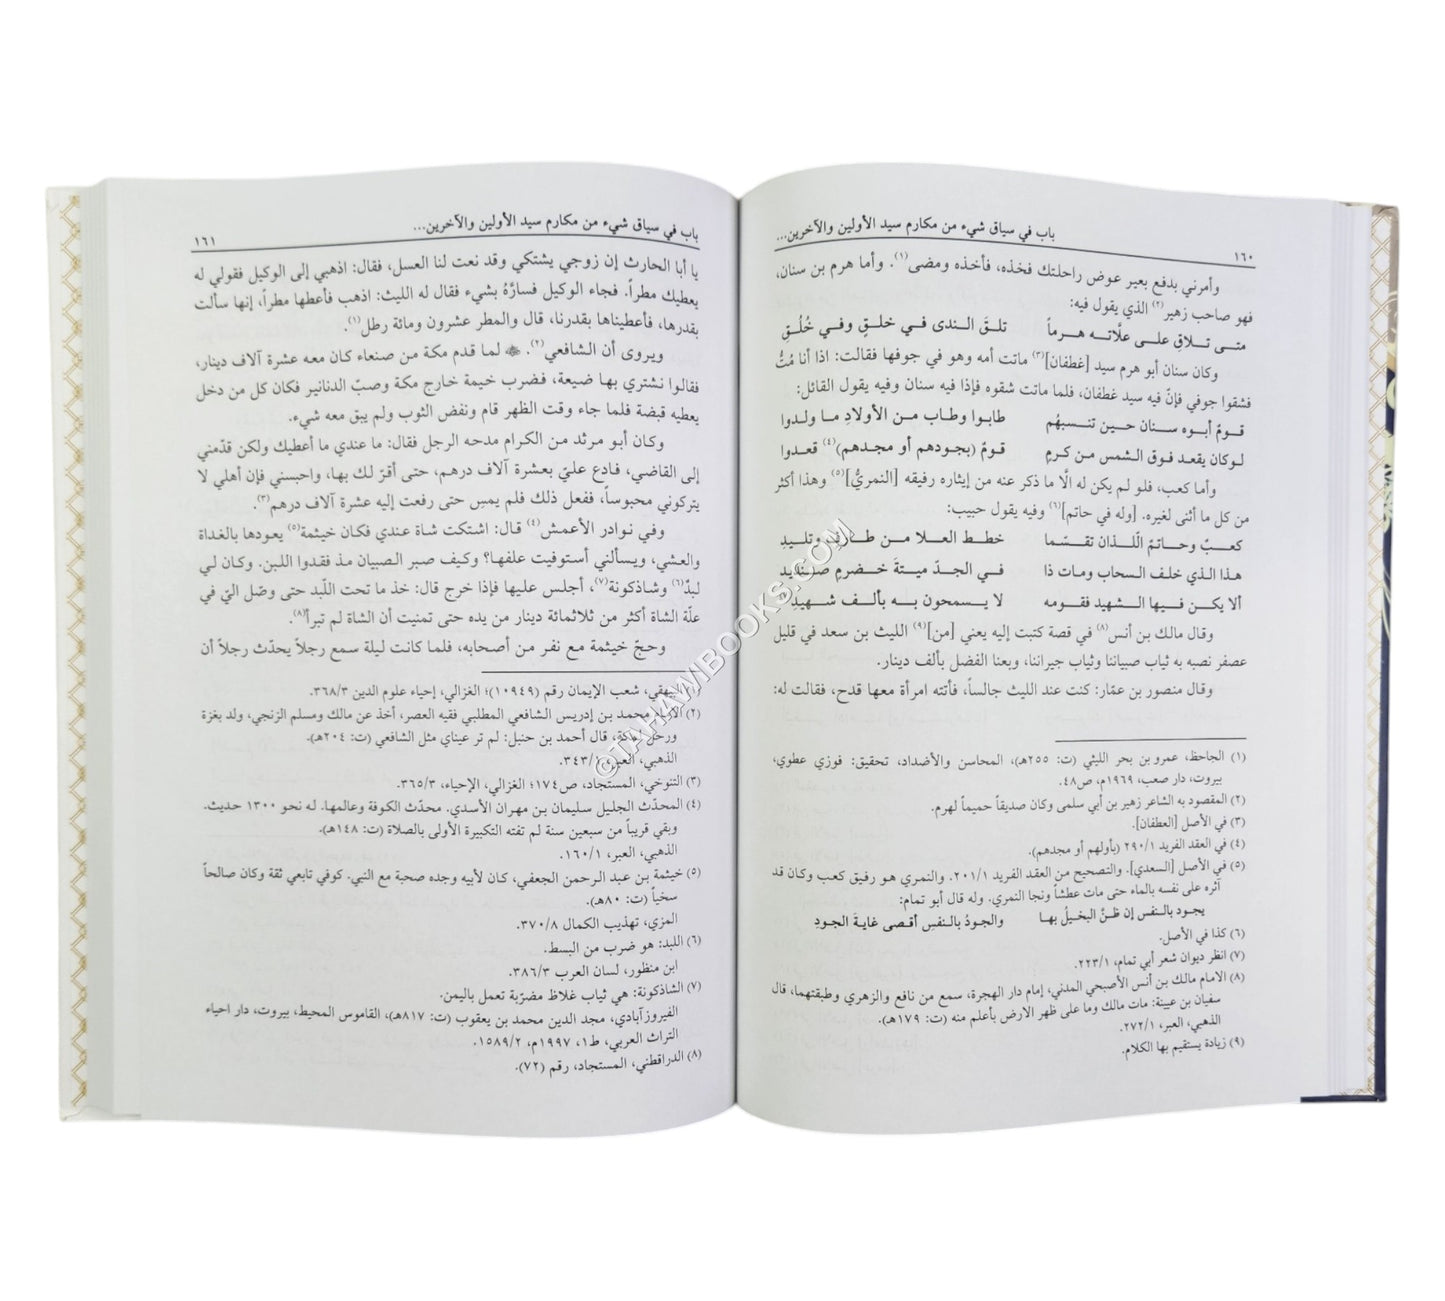 باب في سياق شيء من مكارم سيد الأولين والآخرين...
١٦٠
وأمرني بدفع بعير عوض راحلتك فخذه، فأخذه ومضى(١). وأما هرم بن سنان،
فهو صاحب زهير(٢) الذي يقول فيه:
متى تـلاقِ علـى علّاتـه هـرمـاً تلـقَ الـندى فـي خلـقٍ وفـي خُلُـقِ
وكان سنان أبو هرم سيد [غطفان](٣) ماتت أمه وهو في جوفها فقالت: اذا أنا مُتُّ
فشقوا جوفي فإنّ فيه سيد غطفان، فلما ماتت شقوه فإذا فيه سنان وفيه يقول القائل:
قـومٌ أبـوه سـنان حـين تنـسبهُم طابوا وطاب مـن الأولادِ مـا ولـدوا
لـوكان يقعـد فـوق الـشمس من كـرمٍ قـومٌ (بجودهم أو مجدهم)(٤) قعـدوا
وأما كعب، فلو لم يكن له الّا ما ذكر عنه من إيثاره رفيقه [النمريُّ](٥) وهذا أكثر
من كل ما أثنى لغيره. [وله في حاتم](٦) وفيه يقول حبيب:
كعـبٌ وحـاتـمٌ الّلـذان تقـسّمـا خطـط العـلا مـن وتليدِ
هـذا الـذي خلـف الـسحاب ومـات ذا فـي الجـدّ ميتـةَ خـضرمٍ صـنديد
ألا يكـن فيهـا الـشهيد فقـومـه لا يـسمحون بـه بـألـف شهيـدِ
وقال مالك بن أنس(٨) في قصة كتبت إليه يعني [من](٩) الليث بن سعد في قليل
عصفر نصبه به ثياب صبياننا وثياب جيراننا، وبعنا الفضل بألف دينار.
وقال منصور بن عمّار: كنت عند الليث جالساً، فأتته امرأة معها قدح، فقالت له:
(١) الجاحظ، عمرو بن بحر الليثي (ت: ٢٥٥هـ)، المحاسن والأضداد، تحقيق: فوزي عطوي،
بيروت، دار صعب، ١٩٦٩م، ص٤٨.
(٢) المقصود به الشاعر زهير بن أبي سلمى وكان صديقاً حميماً لهرم.
(٣) في الأصل [العطفان].
(٤) في العقد الفريد ٢٩٠/١ (بأولهم أو مجدهم).
(٥) في الأصل [السعدي]. والتصحيح من العقد الفريد ٢٠١/١. والنمري هو رفيق كعب وكان قد
آثره على نفسه بالماء حتى مات عطشاً ونجا النمري. وله قال أبو تمام:
يجود بالـنفس إن ظـنَّ البخيلُ بهـا والجودُ بالـنفسِ أقـصى غايةَ الجودِ
(٦) كذا في الأصل.
(٧) انظر ديوان شعر أبي تمام، ٢٢٣/١.
(٨) الامام مالك بن أنس الأصبحي المدني، إمام دار الهجرة، سمع من نافع والزهري وطبقتهما، قال
سفيان بن عيينة: مات مالك وما على ظهر الارض بأعلم منه (ت: ١٧٩هـ).
الذهبي، العبر، ٢٧٢/١.
(٩) زيادة يستقيم بها الكلام.
باب في سياق شيء من مكارم سيد الأولين والآخرين...
١٦١
يا أبا الحارث إن زوجي يشتكي وقد نعت لنا العسل، فقال: اذهبي إلى الوكيل فقولي له
يعطيك مطراً. فجاء الوكيل فسارَّهُ بشيء فقال له الليث: اذهب فأعطها مطراً، إنها سألت
بقدرها، فأعطيناها بقدرنا، قال والمطر عشرون ومائة رطل(١).
ويروى أن الشافعي(٢). لما قدم مكة من صنعاء كان معه عشرة آلاف دينار،
فقالوا نشتري بها ضيعة، فضرب خيمة خارج مكة وصبّ الدنانير فكان كل من دخل
يعطيه قبضة فلما جاء وقت الظهر قام ونفض الثوب ولم يبق معه شيء.
وكان أبو مرثد من الكرام مدحه الرجل فقال: ما عندي ما أعطيك ولكن قدّمني
إلى القاضي، فادع عليّ بعشرة آلاف درهم، حتى أقرّ لك بها، واحبسني فإن أهلي لا
يتركوني محبوساً، ففعل ذلك فلم يمسِ حتى رفعت إليه عشرة آلاف درهم(٣).
وفي نوادر الأعمش(٤) قال: اشتكت شاة عندي فكان خيثمة(٥) يعودها بالغداة
والعشي، ويسألني أستوفيت علفها؟ وكيف صبر الصبيان مذ فقدوا اللبن. وكان لي
لبدٌ(٦) وشاذكونة(٧)، أجلس عليها فإذا خرج قال: خذ ما تحت اللّبد حتى وصّل اليّ في
علّة الشاة أكثر من ثلاثمائة دينار من يده حتى تمنيت أن الشاة لم تبرأ(٨).
وحجّ خيثمة مع نفر من أصحابه، فلما كانت ليلة سمع رجلاً يحدّث رجلاً أن
(١) البيهقي، شعب الإيمان رقم (١٠٩٤٩)؛ الغزالي، إحياء علوم الدين ٣٦٨/٣.
(٢) الإمام محمد بن إدريس الشافعي المطلبي فقيه العصر، أخذ عن مالك ومسلم الزنجي، ولد بغزة
ورحل مكة، قال أحمد بن حنبل: لم تر عيناي مثل الشافعي (ت: ٢٠٤هـ).
الذهبي، العبر، ٣٤٣/١.
(٣) التنوخي، المستجاد، ص١٧٤؛ الغزالي، الإحياء، ٣٦٥/٣.
(٤) المحدّث الجليل سليمان بن مهران الأسدي. محدّث الكوفة وعالمها. له نحو ١٣٠٠ حديث.
وبقي قريباً من سبعين سنة لم تفته التكبيرة الأولى بالصلاة (ت: ١٤٨هـ).
الذهبي، العبر، ١٦٠/١.
(٥) خيثمة بن عبد الرحمن الجعفي، كان لأبيه وجده صحبة مع النبي. كوفي تابعي ثقة وكان صالحاً
سخياً (ت: ٨٠هـ).
المزي، تهذيب الكمال ٣٧٠/٨.
(٦) اللبد: هو ضرب من البسط.
ابن منظور، لسان العرب ٣٨٦/٣.
(٧) الشاذكونة: هي ثياب غلاظ مضرّبة تعمل باليمن.
الفيروزآبادي، مجد الدين محمد بن يعقوب (ت: ٨١٧هـ)، القاموس المحيط، بيروت، دار احياء
التراث العربي، ط١، ١٩٩٧م، ١٥٨٩/٢.
(٨) الدراقطني، المستجاد، رقم (٧٢).
©TAHAWIBOOKS.COM